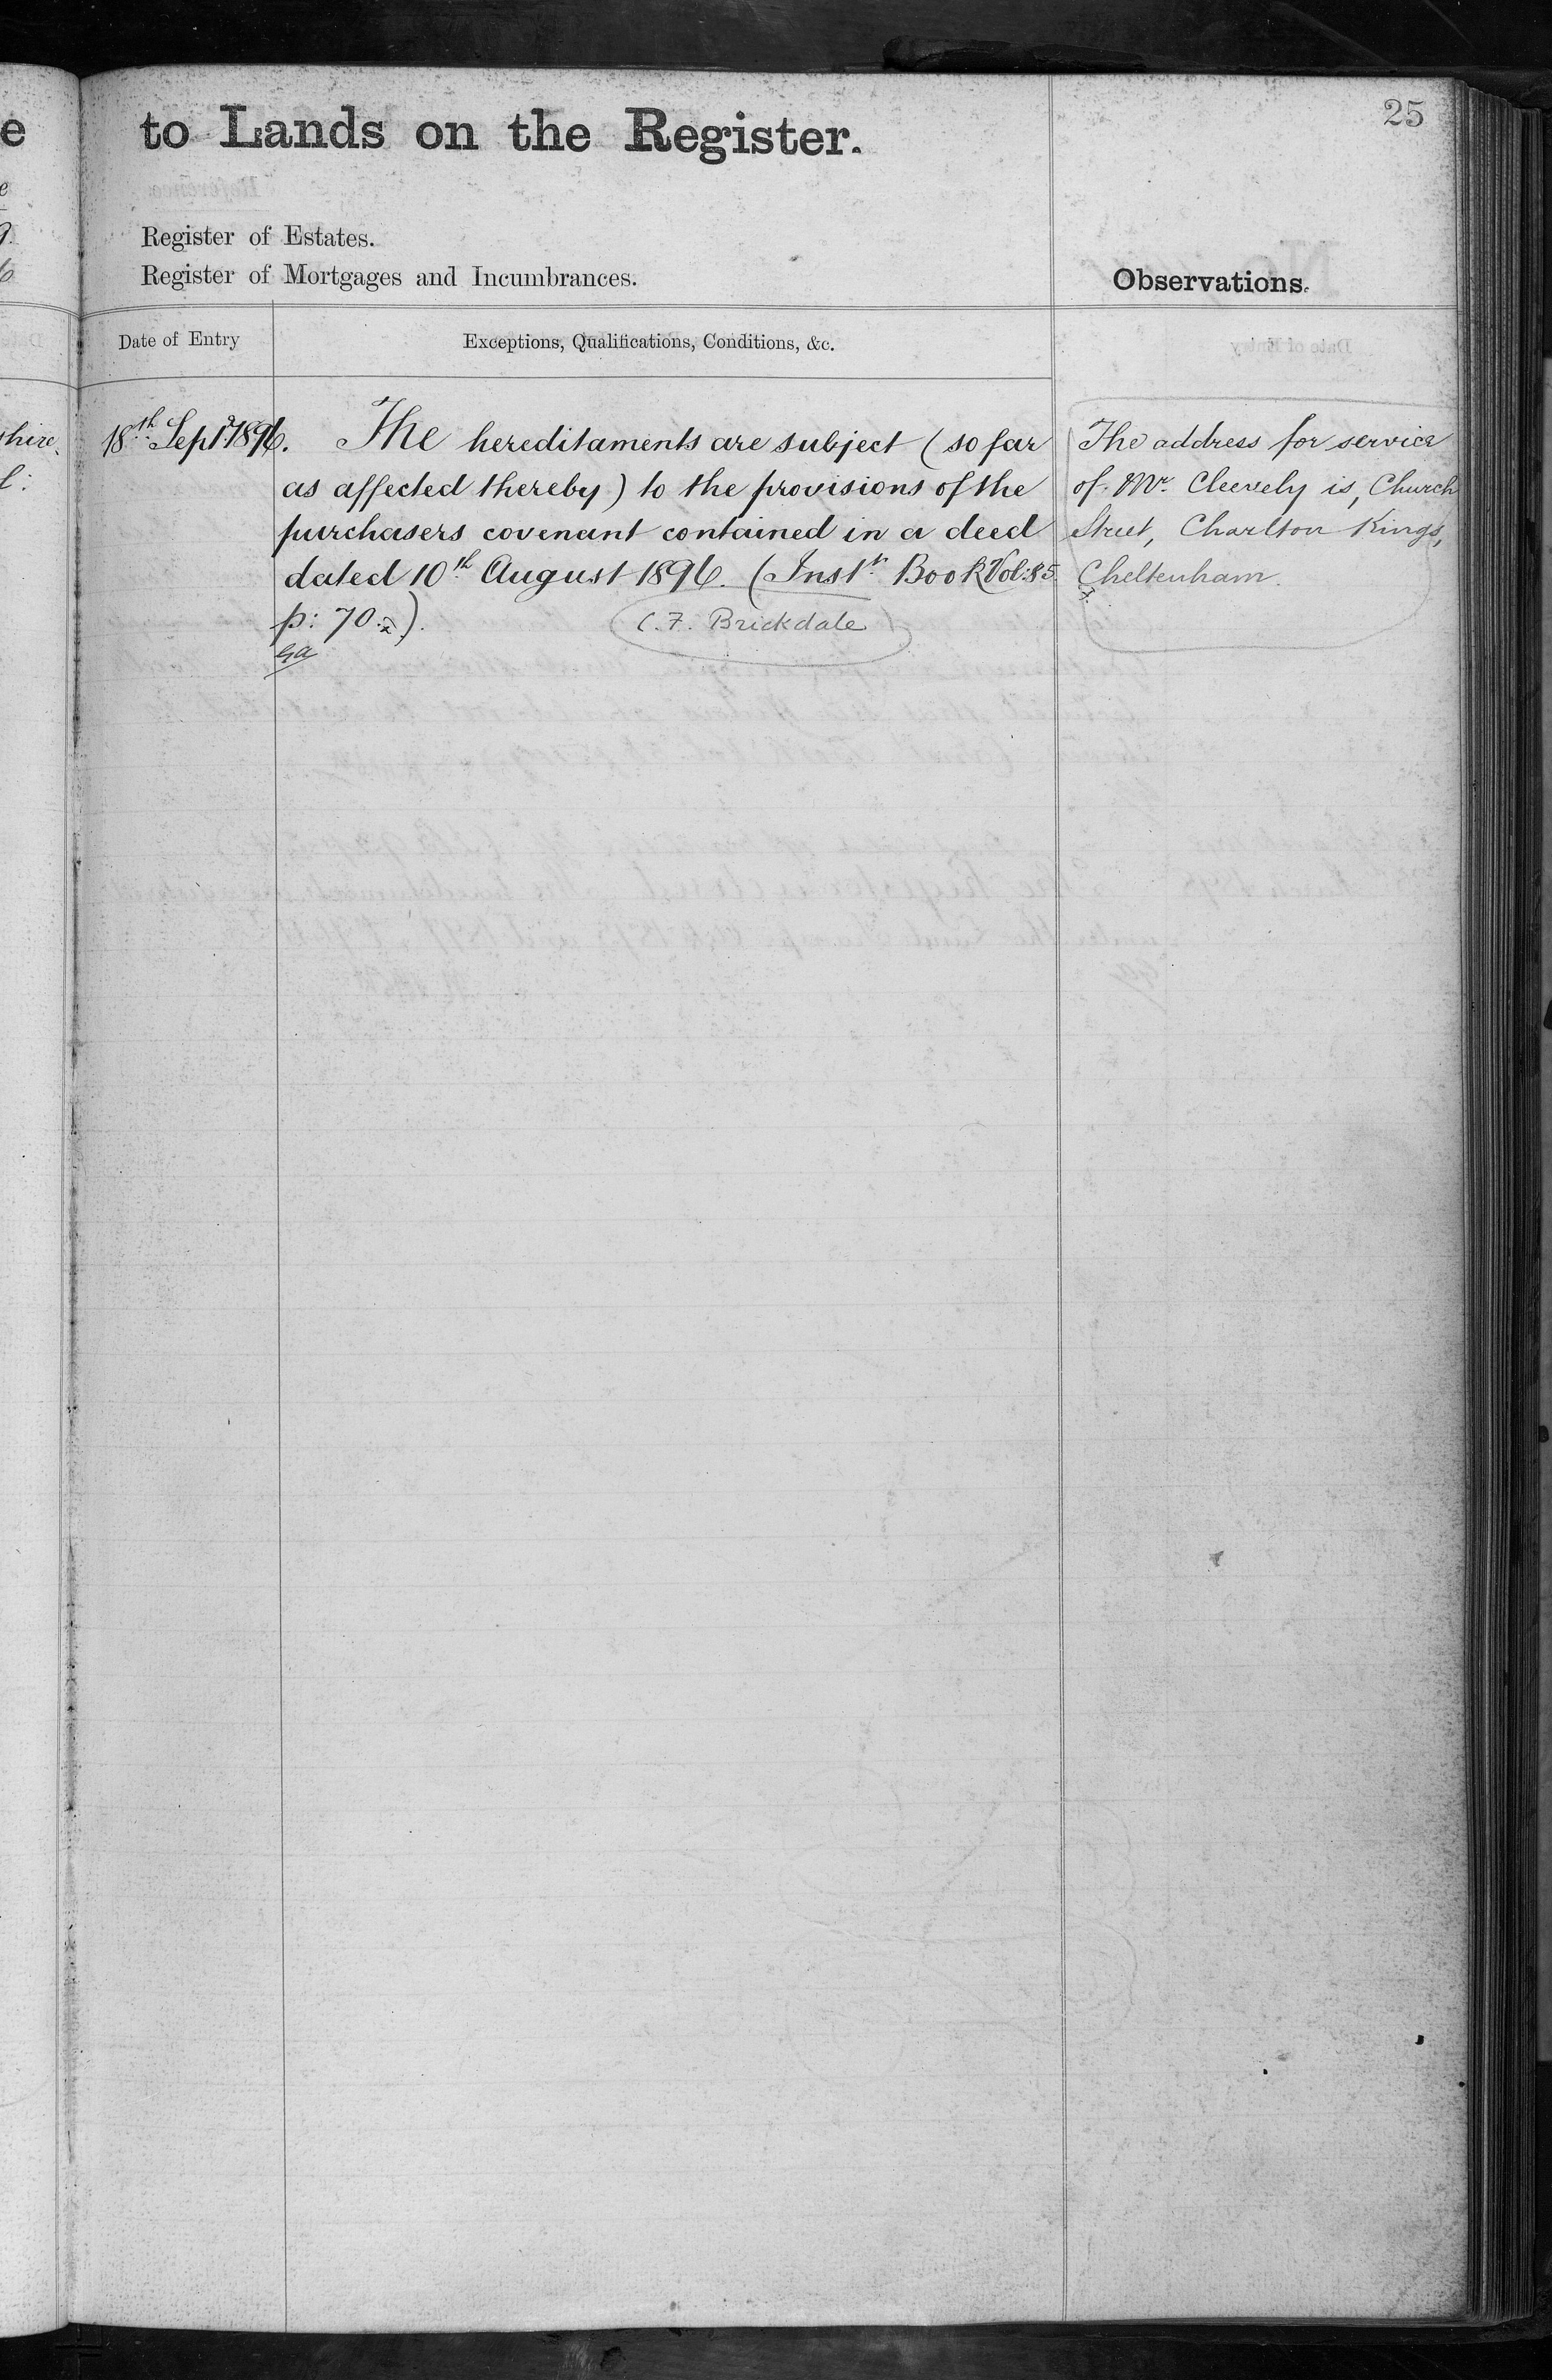 25
to Lands on the Register.
Register of Estates.
Register of Mortgages and Incumbrances.
Observations.
Date of Entry
Exceptions, Qualifications, Conditions, &c.
18th Sept 1896.
The hereditaments are subject (so far
as affected thereby) to the provisions of the
purchasers covenant contained in a deed
dated 10th August 1896. (Instt Book Vol: 85.
p: 70.)
(C.F. Brickdale)
The address for service
of Mr. Cleevely is, Church
Street, Charlton Kings,
Cheltenham.